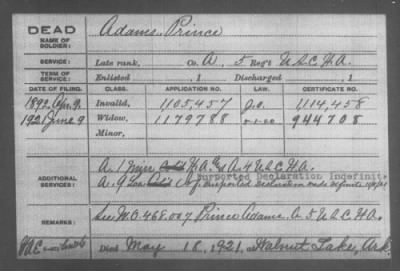 DEAD
NAME OF SOLDIER:
Adams, Prince
SERVICE:
Late rank, Co. A, 5 Reg't U.S.C.H.A.
TERM OF SERVICE:
Enlisted , 1 Discharged , 1
DATE OF FILING. CLASS. APPLICATION NO. LAW. CERTIFICATE NO.
1892, Apr. 9. Invalid, 1105,457 1114,458
1921 June 9 Widow, 1179788 944708
Minor,
ADDITIONAL SERVICES:
A. 1 H.A. & A. 4 U.S.C.H.A.
Purported Declaration Indefinite
A. 9 La.
REMARKS:
See W.O. 468,007 Prince Adams. A. 5 U.S.C.H.A.
Died May 18, 1921, at Walnut Lake, Ark